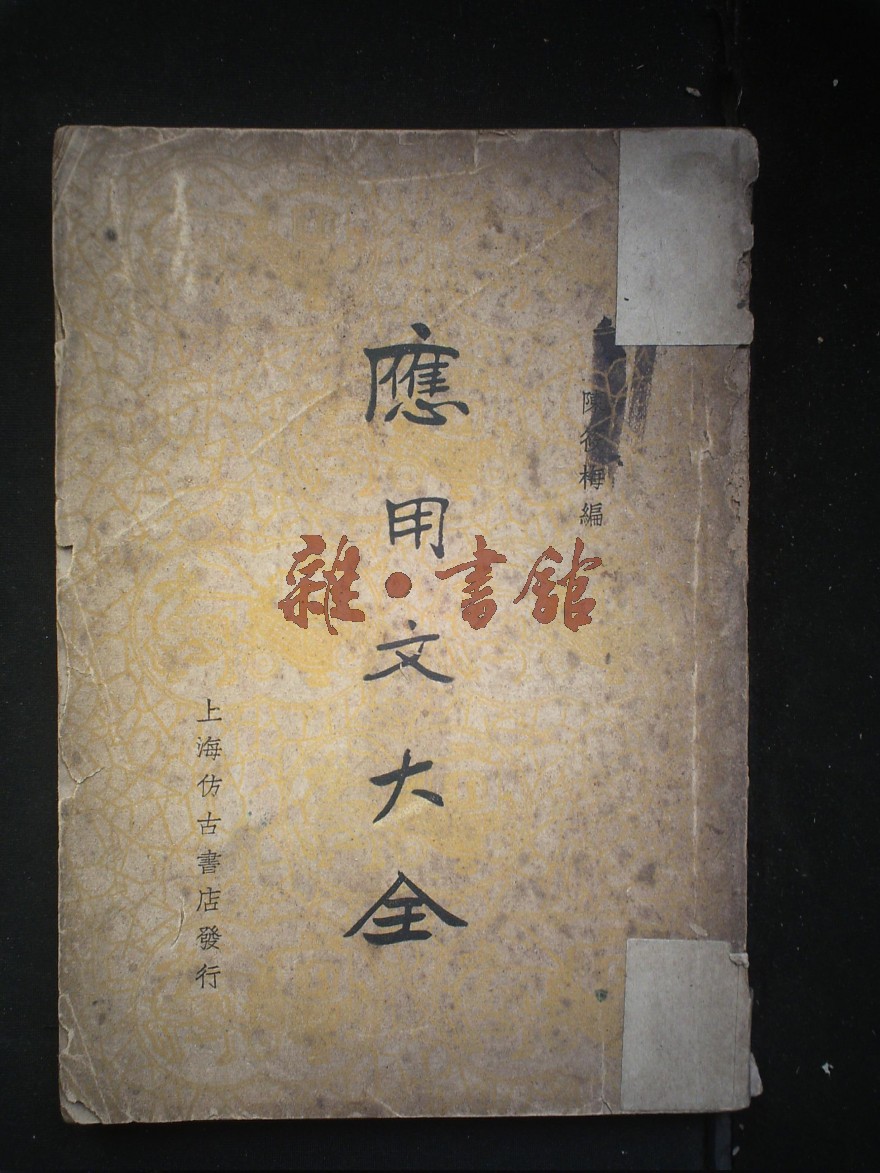 陳梅編
應用文大全
上海仿古書店發行
雜·書館